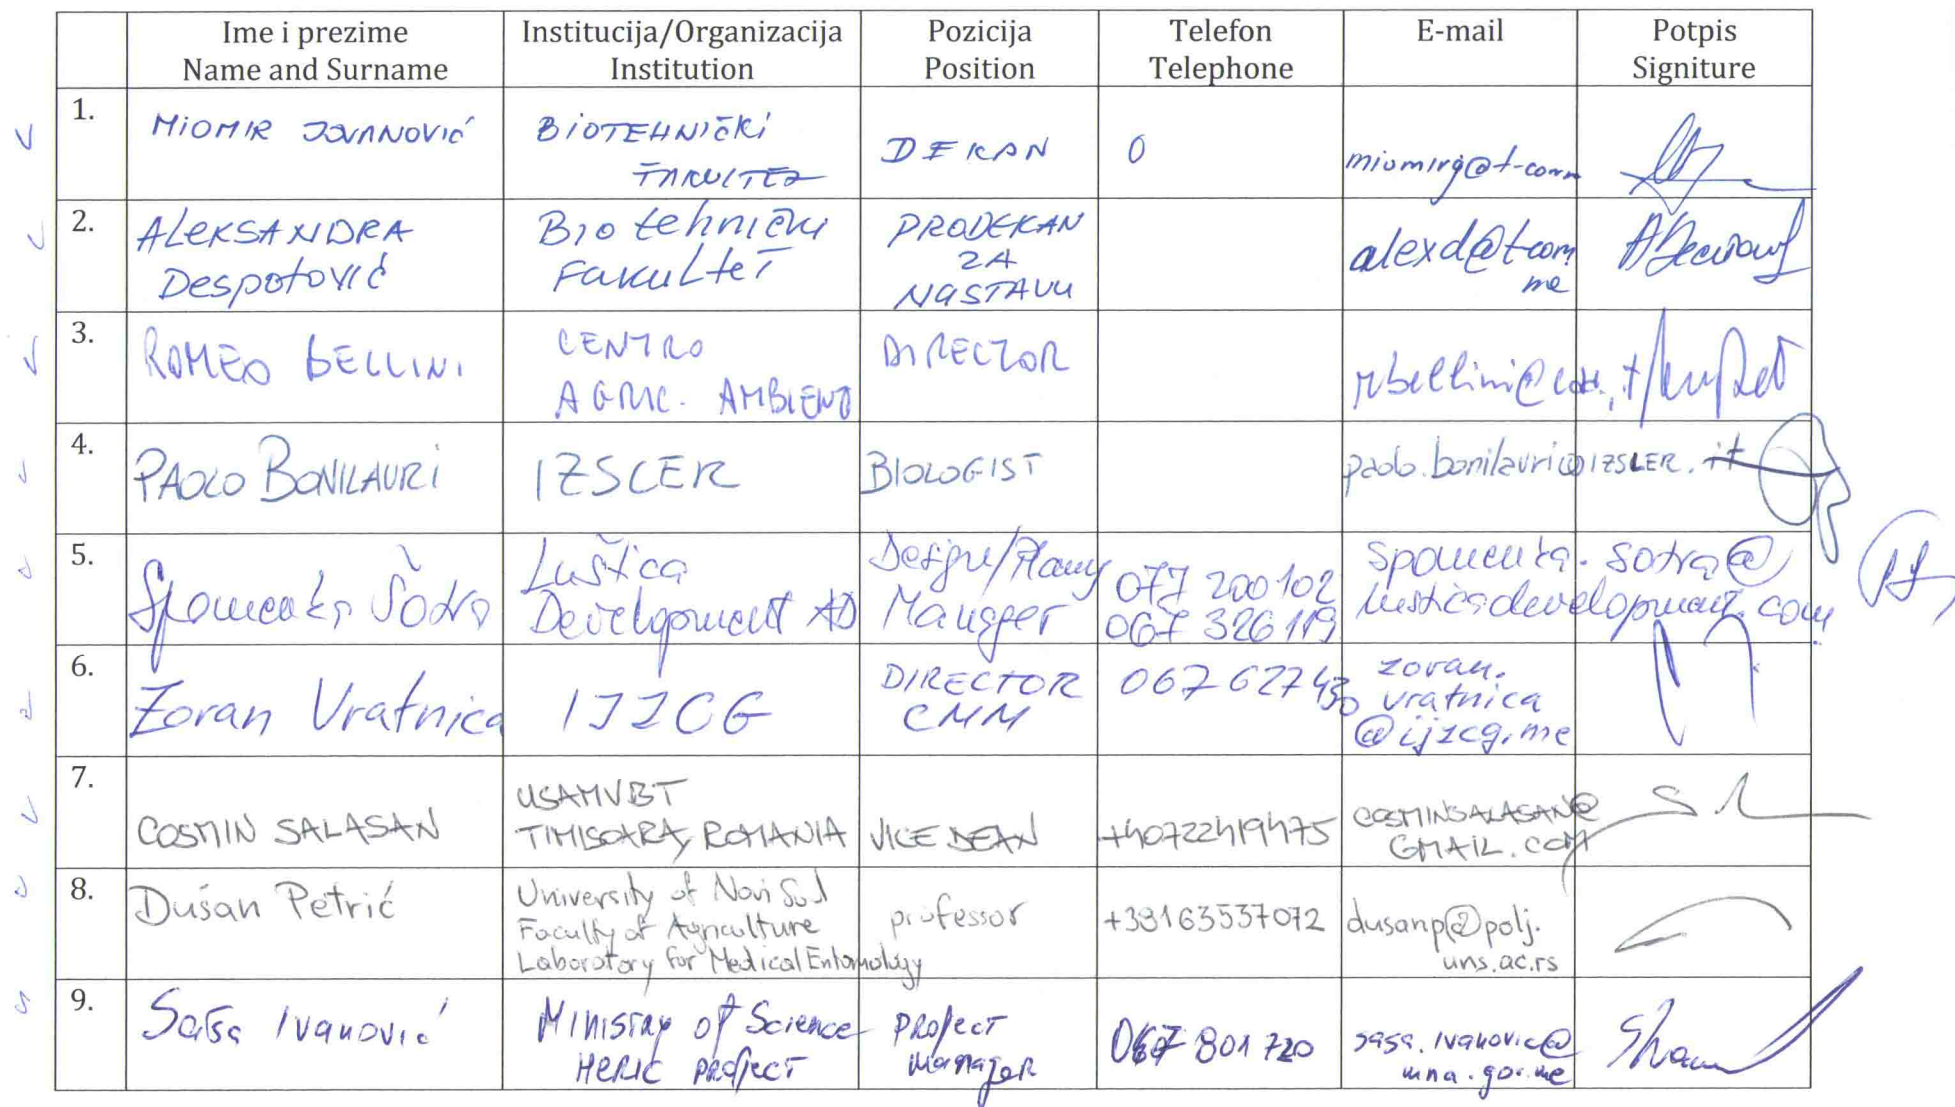 Ime i prezime
Name and Surname
Institucija/Organizacija
Institution
Pozicija
Position
Telefon
Telephone
E-mail
Potpis
Signiture
1.
MIOMIR JOVANOVIĆ
BIOTEHNIČKI
FAKULTET
DEKAN
0
miomirg@t-com
2.
ALEKSANDRA
Despotović
Biotehnički
Fakultet
PRODEKAN
ZA
NASTAVU
alexd@t-com
me
3.
ROMEO BELLINI
CENTRO
AGRIC. AMBIENTE
DIRECTOR
rbellini@caa.it
4.
PAOLO BONILAURI
IZSLER
BIOLOGIST
paolo.bonilauri@IZSLER.it
5.
Spomenka Šotra
Luštica
Development AD
Design/
Manager
077 200 102
067 326 119
spomenka.sotra@
lusticadevelopment.com
6.
Zoran Vratnica
IJZCG
DIRECTOR
CMM
067 627 430
zoran.
vratnica
@ijzcg.me
7.
COSMIN SALASAN
USAMVBT
TIMISOARA, ROMANIA
VICE DEAN
+40722419475
COSMINSALASAN@
GMAIL.COM
8.
Dušan Petrić
University of Novi Sad
Faculty of Agriculture
Laboratory for Medical Entomology
professor
+38163537072
dusanp@polj.
uns.ac.rs
9.
Saša Ivanović
Ministry of Science
HERIC project
Project
Manager
067 801 720
sasa.ivanovic@
mna.gov.me